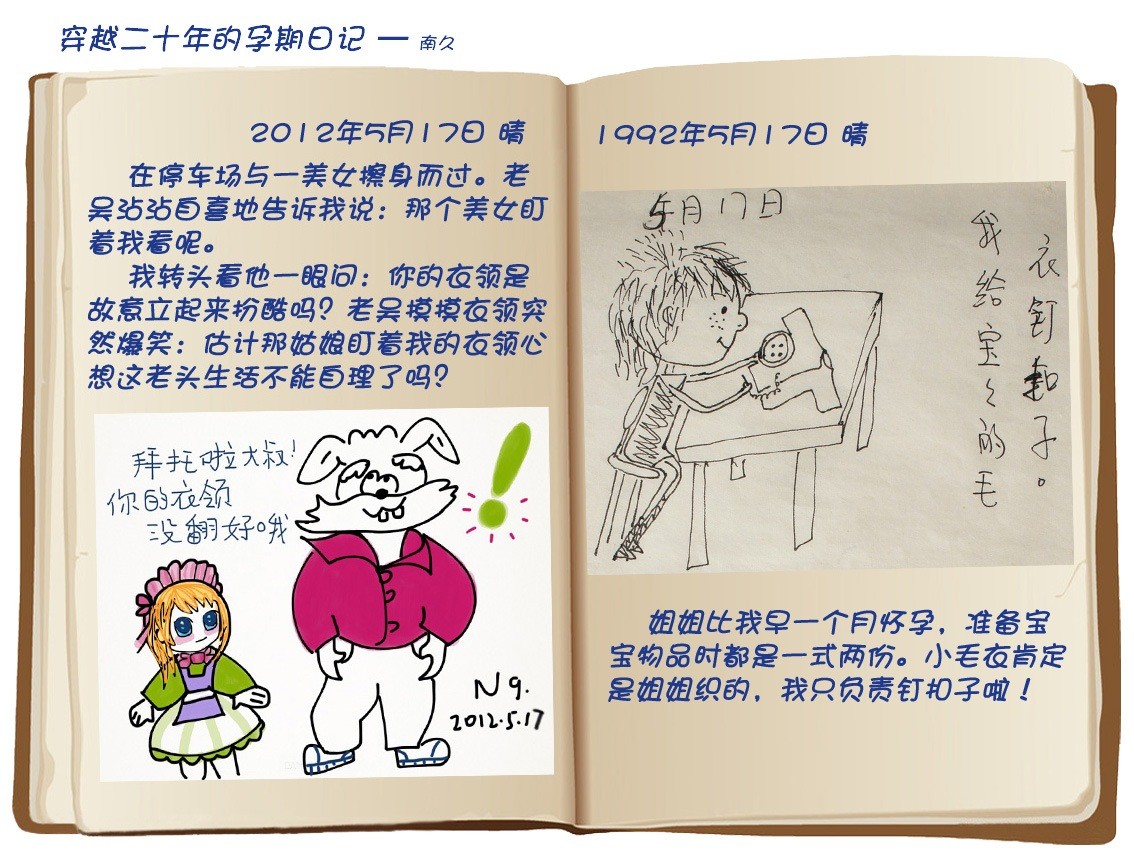 穿越二十年的孕期日记 — 南久
2012年5月17日 晴
在停车场与一美女擦身而过。老
吴沾沾自喜地告诉我说：那个美女盯
着我看呢。
我转头看他一眼问：你的衣领是
故意立起来扮酷吗？老吴摸摸衣领突
然爆笑：估计那姑娘盯着我的衣领心
想这老头生活不能自理了吗？
拜托啦大叔！
你的衣领
没翻好哦
N9.
2012.5.17
1992年5月17日 晴
5月17日
我给宝々的毛
衣钉扣子。
姐姐比我早一个月怀孕，准备宝
宝物品时都是一式两份。小毛衣肯定
是姐姐织的，我只负责钉扣子啦！